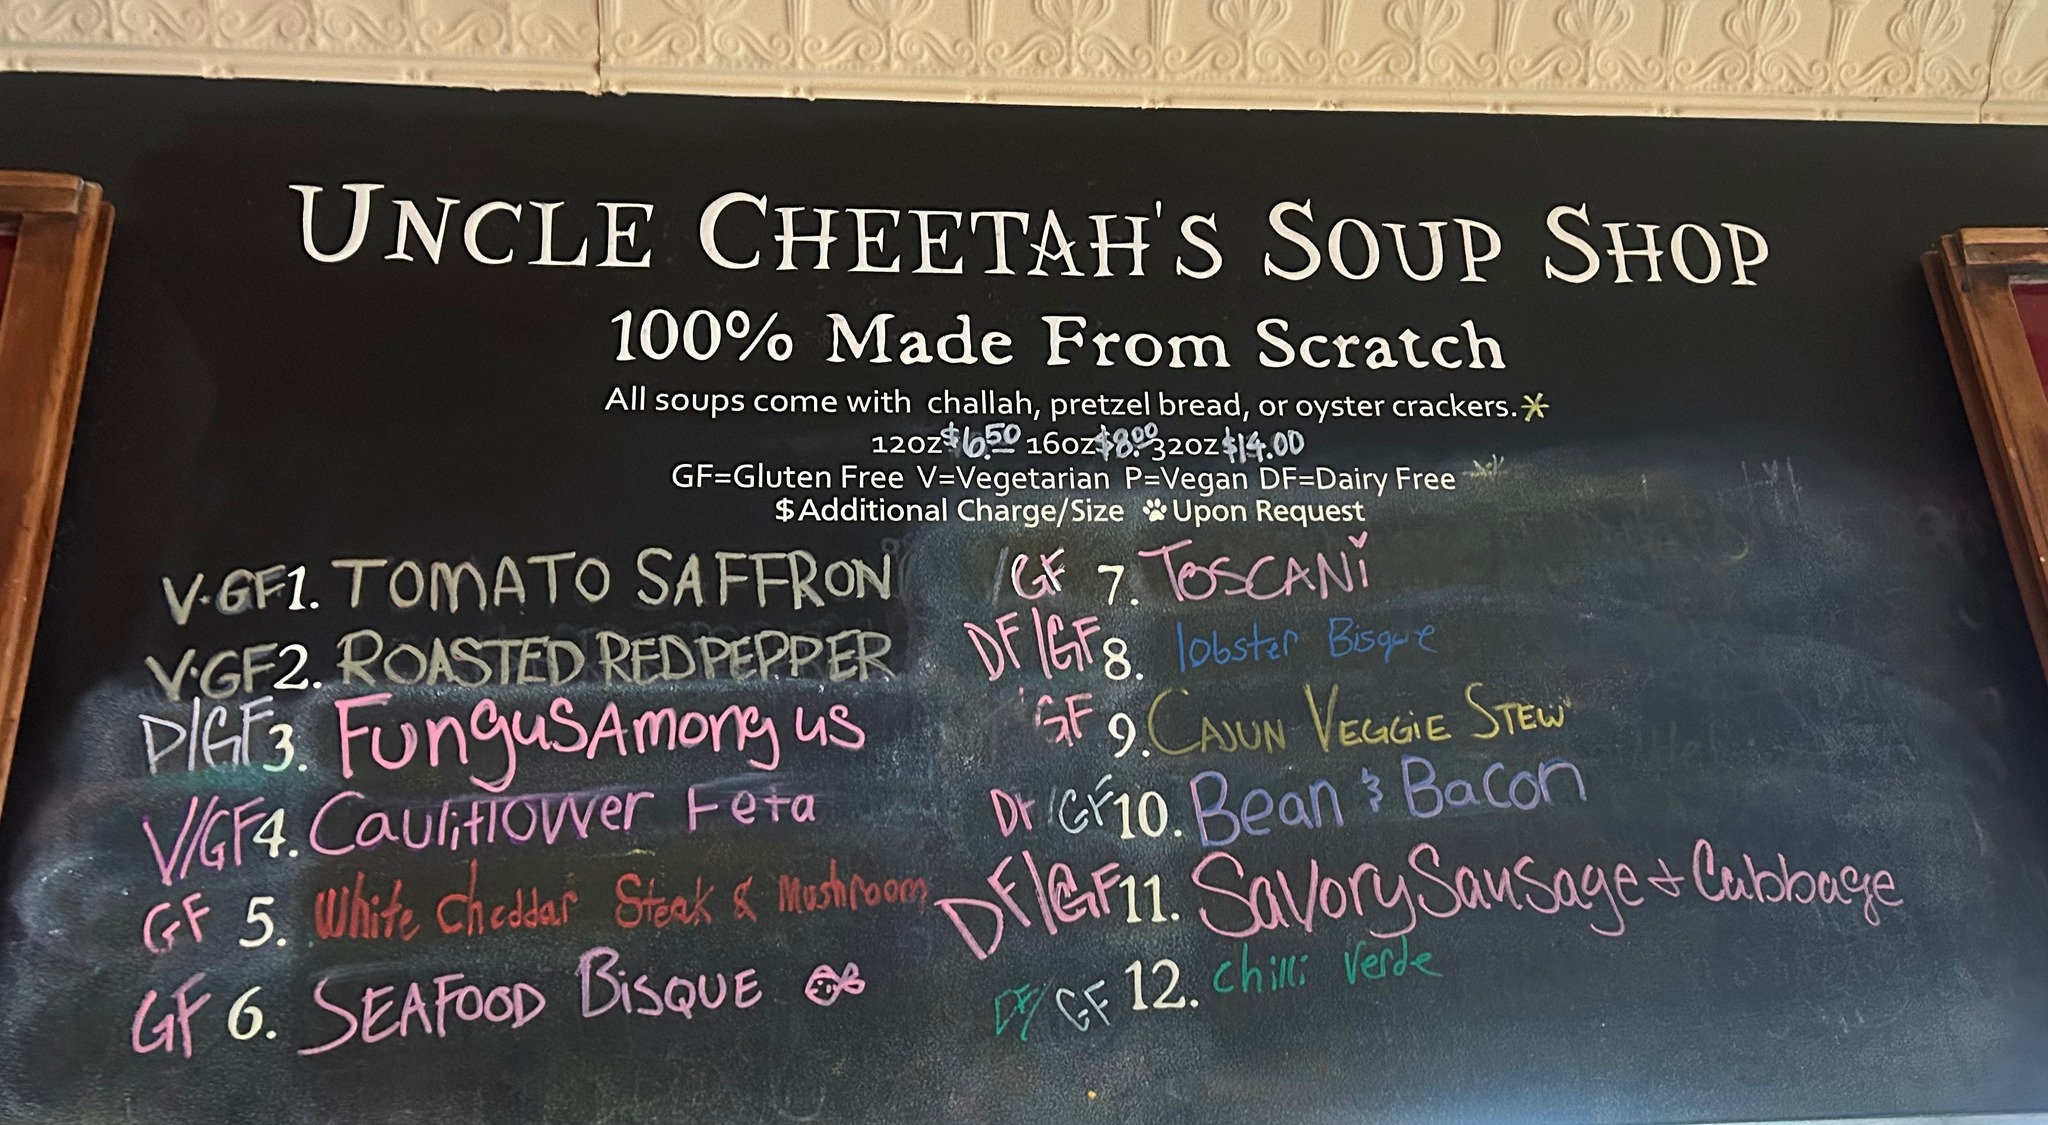 UNCLE CHEETAH'S SOUP SHOP
100% Made From Scratch
All soups come with challah, pretzel bread, or oyster crackers.*
12oz $6.50 16oz $8.00 32oz $14.00
GF=Gluten Free V=Vegetarian P=Vegan DF=Dairy Free *
$Additional Charge/Size 🐾Upon Request
V·GF 1. TOMATO SAFFRON
V·GF 2. ROASTED RED PEPPER
P/GF 3. Fungus Among us
V/GF 4. Cauliflower Feta
GF 5. White Cheddar Steak & Mushroom
GF 6. SEAFOOD BISQUE
/GF 7. TOSCANi
DF/GF 8. lobster Bisque
GF 9. CAJUN VEGGIE STEW
DF/GF 10. Bean & Bacon
DF/GF 11. Savory Sausage + Cabbage
DF/GF 12. Chilli Verde